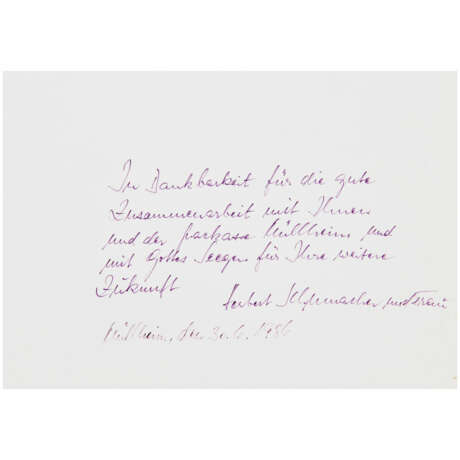 In Dankbarkeit für die gute
Zusammenarbeit mit Ihnen
und der Sparkasse Müllheim und
mit Gottes Seegen für Ihre weitere
Zukunft
Herbert Schumacher und Frau
Müllheim, den 30.6.1986